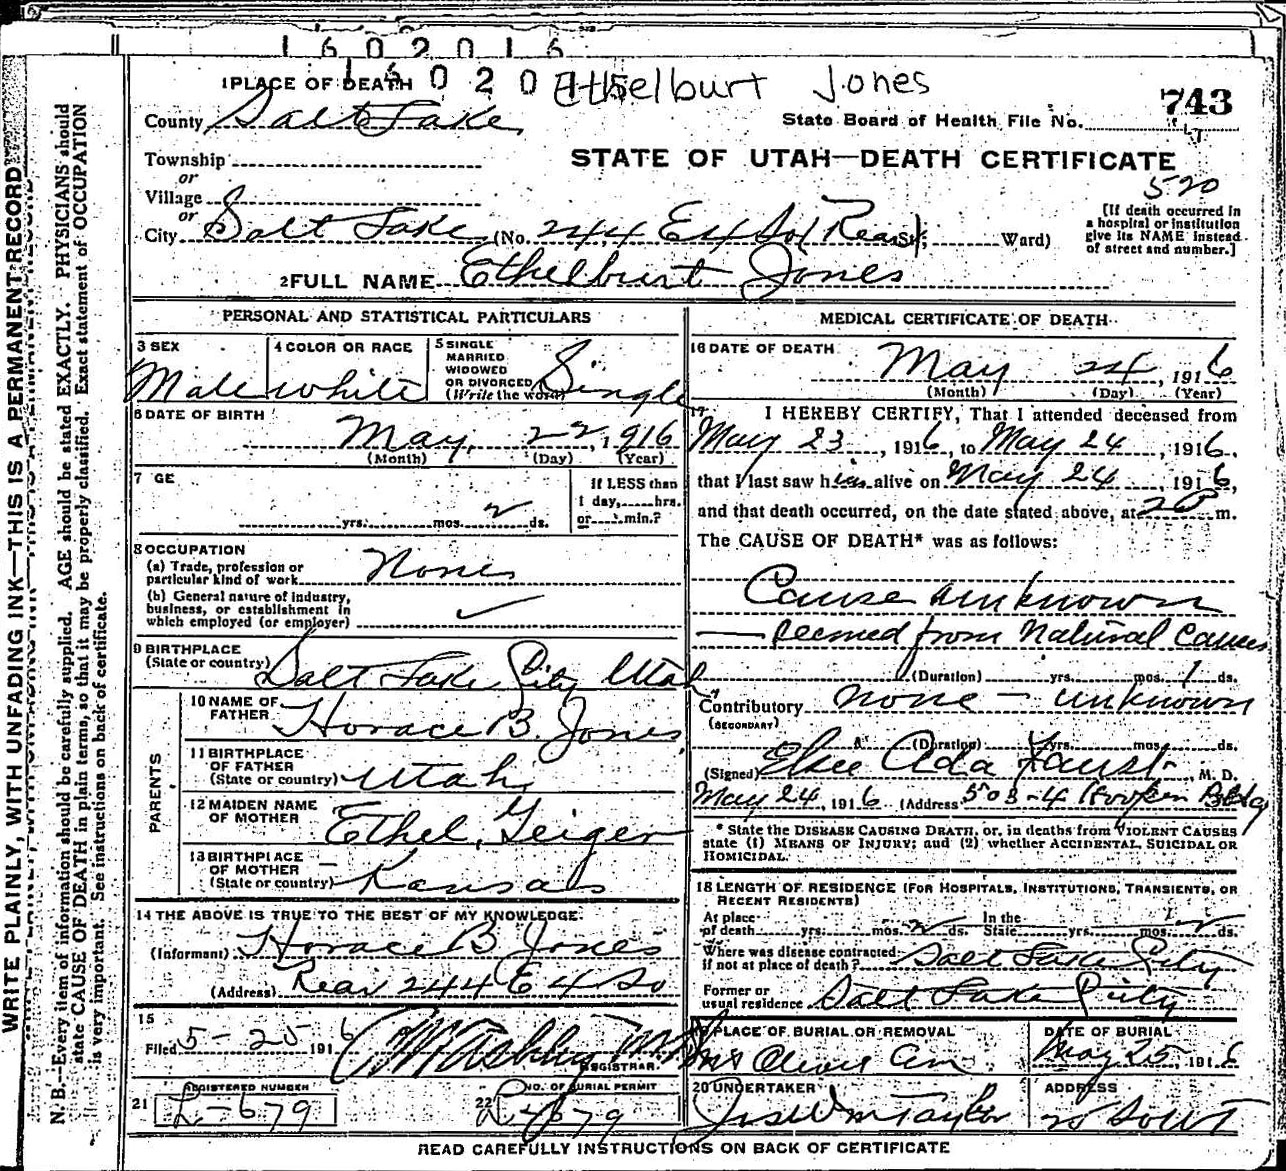 1602016
16020
Ethelburt Jones
1 PLACE OF DEATH
743
County Salt Lake
State Board of Health File No.
Township
STATE OF UTAH—DEATH CERTIFICATE
or
Village
520
or
[If death occurred in a hospital or institution give its NAME instead of street and number.]
City Salt Lake (No. 244 E 4 So (Rear) St; Ward)
2 FULL NAME Ethelburt Jones
PERSONAL AND STATISTICAL PARTICULARS
3 SEX
Male
4 COLOR OR RACE
white
5 SINGLE
MARRIED
WIDOWED
OR DIVORCED
(Write the word)
Single
6 DATE OF BIRTH
May 22, 1916
(Month) (Day) (Year)
7 GE
yrs. mos. 2 ds.
If LESS than
1 day, hrs.
or min.?
8 OCCUPATION
(a) Trade, profession or
particular kind of work None
(b) General nature of industry,
business, or establishment in
which employed (or employer) ✓
9 BIRTHPLACE
(State or country) Salt Lake City Utah
PARENTS
10 NAME OF
FATHER Horace B. Jones
11 BIRTHPLACE
OF FATHER
(State or country) Utah
12 MAIDEN NAME
OF MOTHER Ethel Geiger
13 BIRTHPLACE
OF MOTHER
(State or country) Kansas
14 THE ABOVE IS TRUE TO THE BEST OF MY KNOWLEDGE
(Informant) Horace B Jones
(Address) Rear 244 E 4 So
15
Filed 5-25 1916
REGISTRAR
21 REGISTERED NUMBER
L-679
22 NO. OF BURIAL PERMIT
L-679
MEDICAL CERTIFICATE OF DEATH
16 DATE OF DEATH
May 24, 1916
(Month) (Day) (Year)
17
I HEREBY CERTIFY, That I attended deceased from
May 23, 1916, to May 24, 1916.
that I last saw him alive on May 24, 1916,
and that death occurred, on the date stated above, at 2 P m.
The CAUSE OF DEATH* was as follows:
Cause unknown
— seemed from Natural Causes
(Duration) yrs. mos. 1 ds.
Contributory none — unknown
(SECONDARY)
(Duration) yrs. mos. ds.
(Signed) Elsie Ada Faust, M. D.
May 24, 1916 (Address 503-4 Bldg
* State the DISEASE CAUSING DEATH, or, in deaths from VIOLENT CAUSES
state (1) MEANS OF INJURY; and (2) whether ACCIDENTAL, SUICIDAL OR
HOMICIDAL.
18 LENGTH OF RESIDENCE (FOR HOSPITALS, INSTITUTIONS, TRANSIENTS, OR
RECENT RESIDENTS)
At place
of death yrs. mos. 2 ds.
In the
State yrs. mos. 2 ds.
Where was disease contracted
if not at place of death? Salt Lake City
Former or
usual residence Salt Lake City
19 PLACE OF BURIAL OR REMOVAL
Mt Olivet Cem
DATE OF BURIAL
May 25, 1916
20 UNDERTAKER
Jos Wm Taylor
ADDRESS
READ CAREFULLY INSTRUCTIONS ON BACK OF CERTIFICATE
WRITE PLAINLY, WITH UNFADING INK—THIS IS A PERMANENT RECORD
N. B.—Every item of information should be carefully supplied. AGE should be stated EXACTLY. PHYSICIANS should
state CAUSE OF DEATH in plain terms, so that it may be properly classified. Exact statement of OCCUPATION
is very important. See instructions on back of certificate.